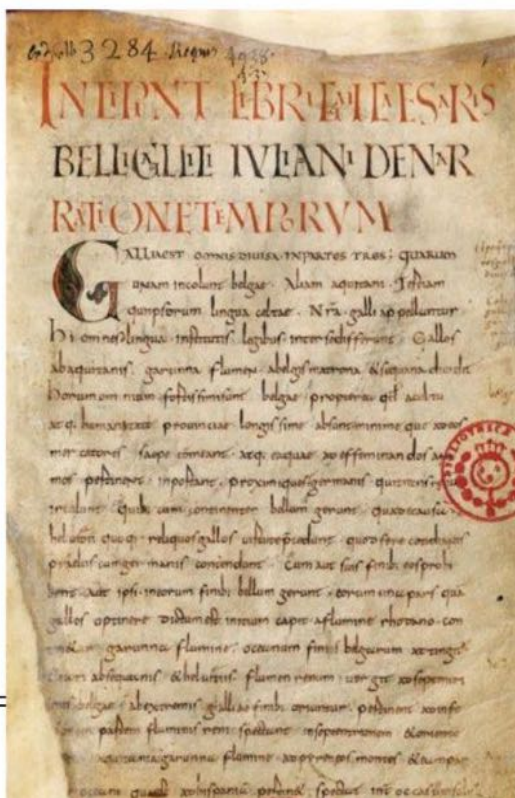 3284
INCIPIVNT LIBRI GAII CAESARIS
BELLI GALLICI IVLIANI DE NAR
RATIONE TEMPORVM
GALLIA EST OMNIS DIVISA IN PARTES TRES; QUARUM
unam incolunt belgae. Aliam aquitani. Tertiam
qui ipsorum lingua celtae. Nra galli appelluntur
hi omnes lingua institutis legibus inter se differunt. Gallos
ab aquitanis. garunna flumen. a belgis matrona & sequana
horum omnium fortissimi sunt belgae propterea
atq; humanitate provinciae longissime absunt minime que ad eos
mercatores saepe comeant. atq; ea quae ad effeminandos
mos pertinent inportant. proximique s; germanis qui trans
incolunt. quibus cum continenter bellum gerunt. qua de causa
helvetii quoq; reliquos gallos virtute precedunt. quod fere cotidianis
proeliis cum germanis contendunt. Cum aut suis finib; eos prohi
bent. aut ipsi in eorum finib; bellum gerunt. eorum una pars quā
gallos optinere dictum est. initium capit a flumine rhodano. con
garunna flumine. oceanum finib; belgarum attingit
ab sequanis & helvetiis flumen renum. vergit ad septem
belgae. ab extremis galliae finib; oriuntur. pertinent ad infe
partem fluminis reni. spectant in septentrionem &
garunna flumine ad pyreneos montes &
oceani quae ad hispaniam pertinet. spectat int
BIBLIOTHECA